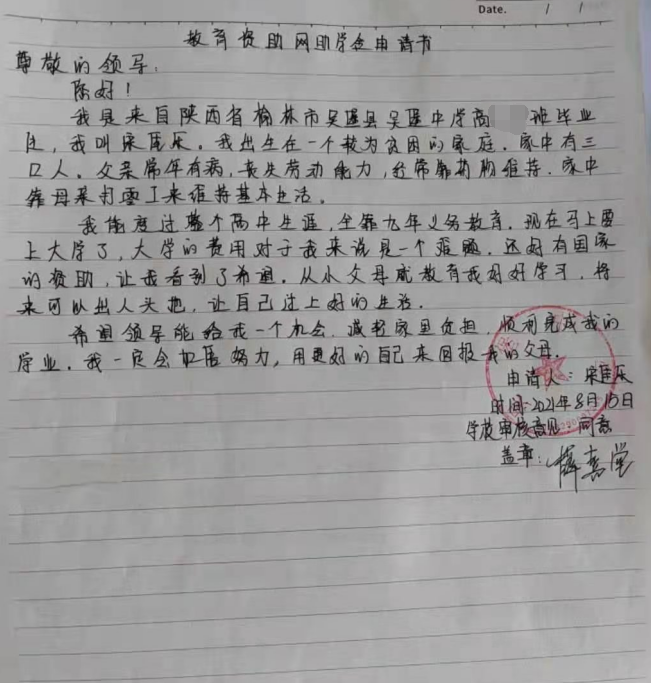 Date. / /
教育资助网助学金申请书
尊敬的领导:
您好!
我是来自陕西省榆林市吴堡县吴堡中学高 班毕业
生,我叫宋佳乐。我出生在一个较为贫困的家庭.家中有三
口人。父亲常年有病,丧失劳动能力,经常靠药物维持.家中
靠母亲打零工来维持基本生活。
我能度过整个高中生涯,全靠九年义务教育.现在马上要
上大学了,大学的费用对于我来说是一个难题.还好有国家
的资助,让我看到了希望.从小父母就教育我好好学习,将
来可以出人头地,让自己过上好的生活.
希望领导能给我一个机会.减轻家里负担,顺利完成我的
学业.我一定会加倍努力,用更好的自己来回报我的父母.
申请人:宋佳乐
时间:2021年8月15日
学校审核意见:同意
盖章: